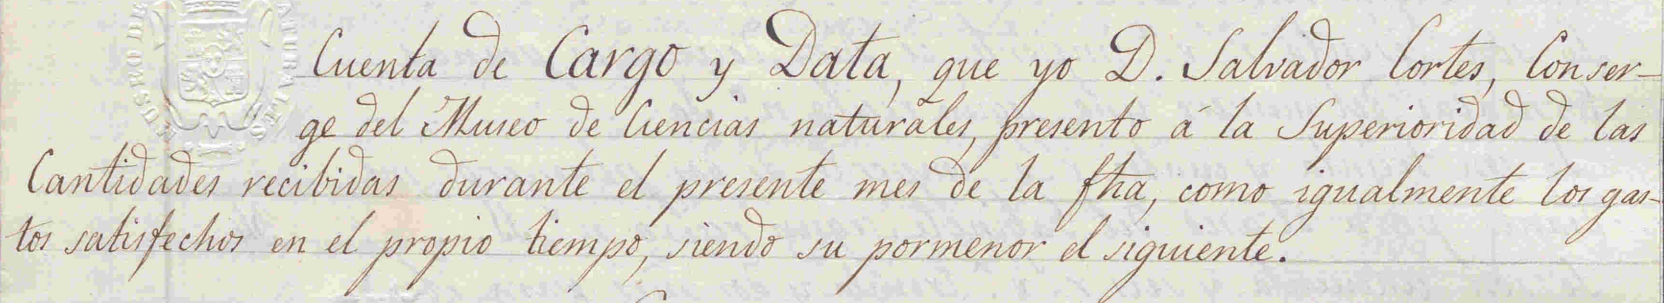 Cuenta de Cargo y Data, que yo D. Salvador Cortes, Conser-
ge del Museo de Ciencias naturales, presento á la Superioridad de las
Cantidades recibidas durante el presente mes de la fha, como igualmente los gas-
tos satisfechos en el propio tiempo, siendo su pormenor el siguiente.